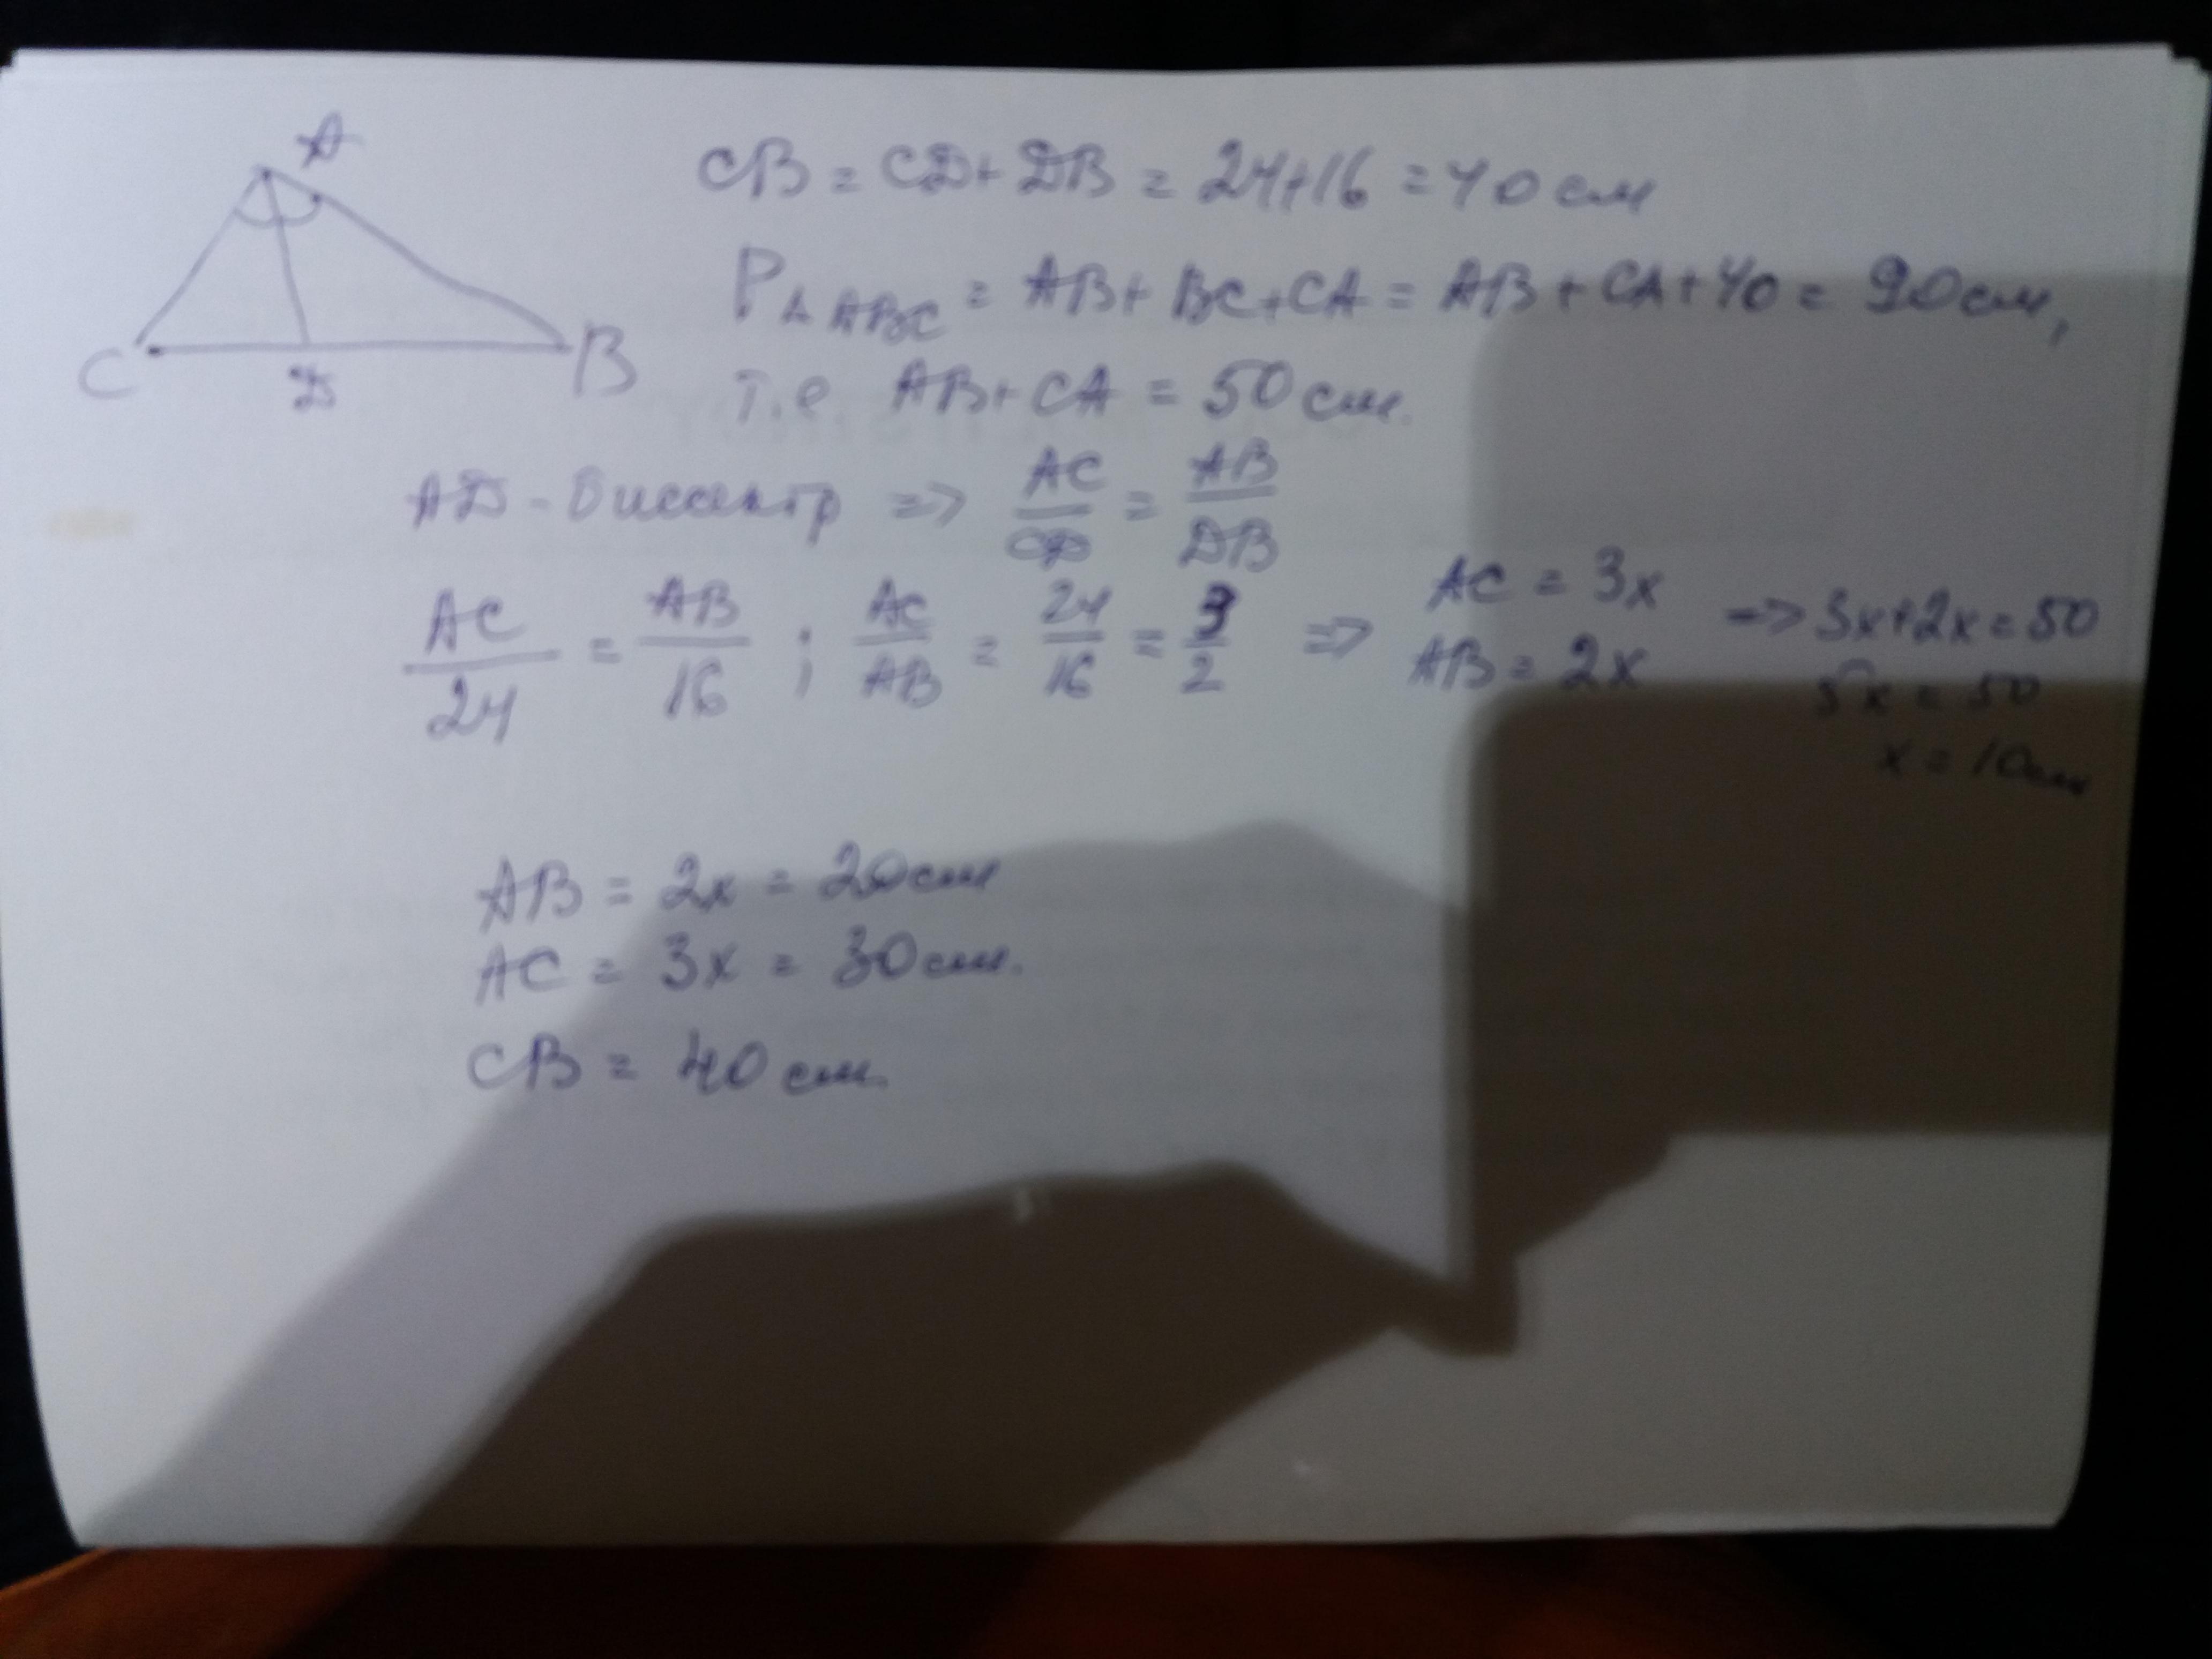 A
C
D
B
CB = CD + DB = 24+16 = 40 см
P△ABC = AB + BC + CA = AB + CA + 40 = 90 см,
т.е. AB + CA = 50 см.
AD - биссектр => AC/CD = AB/DB
AC/24 = AB/16 ; AC/AB = 24/16 = 3/2 => AC = 3x
AB = 2x
=> 3x+2x = 50
5x = 50
x = 10 см
AB = 2x = 20 см
AC = 3x = 30 см.
CB = 40 см.